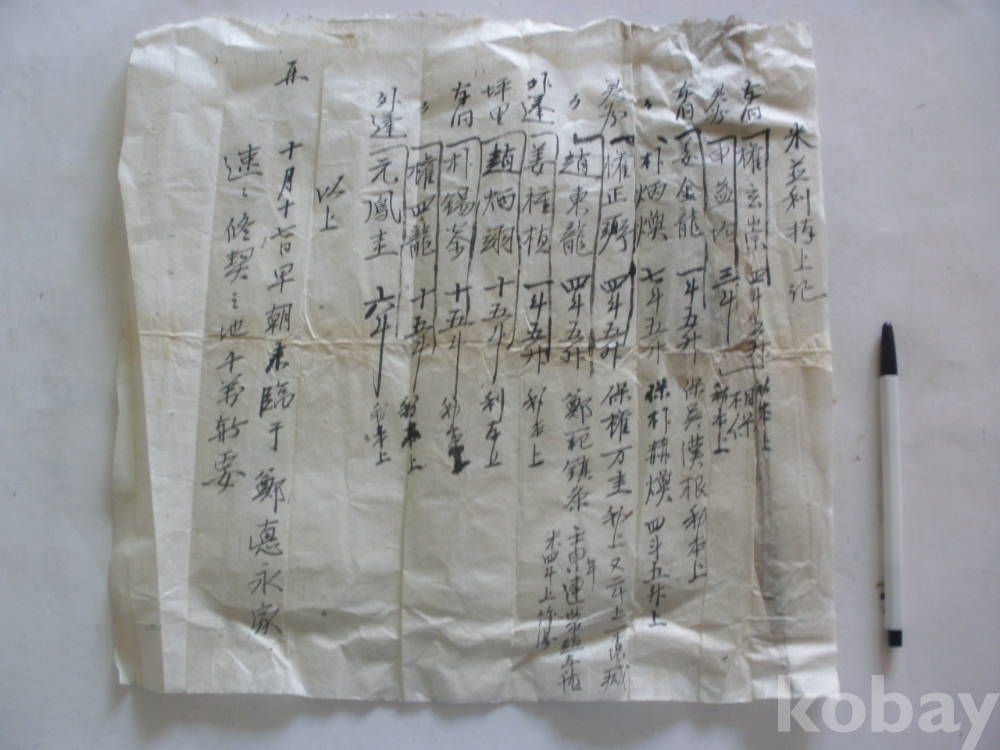 米並利捧上記
權玄崇 四斗五升 利本上 相保
三斗 利本上
姜金龍 一斗五升 保吳漢根利本上
朴炳煥 七斗五升 保朴赫煥 四斗五升上
權正弼 四斗五升 保權万圭利上又二斗上
趙東龍 四斗五升 鄭 鎮条 壬申年連
米四斗上
外蓮 姜桂楨 一斗五升 利本上
坪里 趙炳瓓 十五斗 利本上
朴錫 十五斗 利本上
權四龍 十五斗 利本上
外蓮 元鳳圭 六斗 利本上
以上
再
十月十 日早朝來臨于鄭悳永家
速〻修契之地千萬 要
kobay